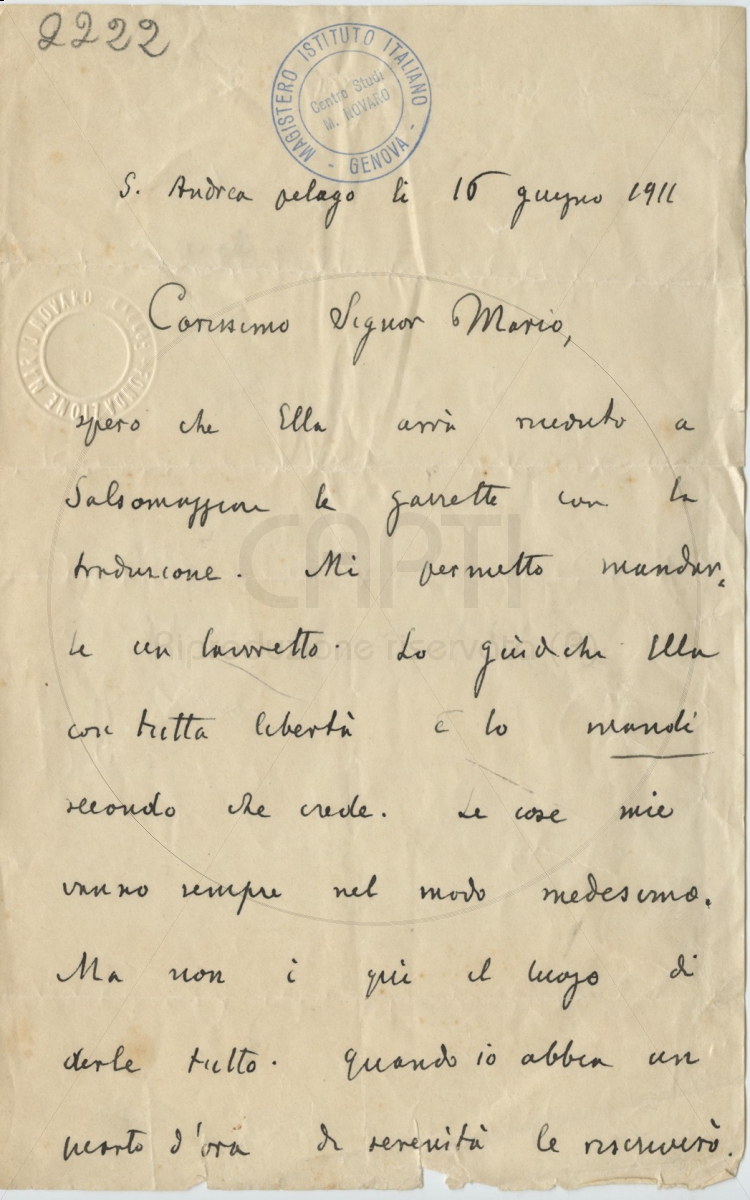 2222
MAGISTERO ISTITUTO ITALIANO - GENOVA -
Centro Studi
M. NOVARO
S. Andrea pelago li 16 giugno 1911
FONDAZIONE MARIO NOVARO
Carissimo Signor Mario,
spero che Ella avrà ricevuto a
Salsomaggiore le gazzette con la
traduzione. Mi permetto mandar-
le un lavoretto. Lo giudichi Ella
con tutta libertà e lo mandi
secondo che crede. Le cose mie
vanno sempre nel modo medesimo.
Ma non è qui il luogo di
dirle tutto. Quando io abbia un
quarto d'ora di serenità le riscriverò.
CAPTI